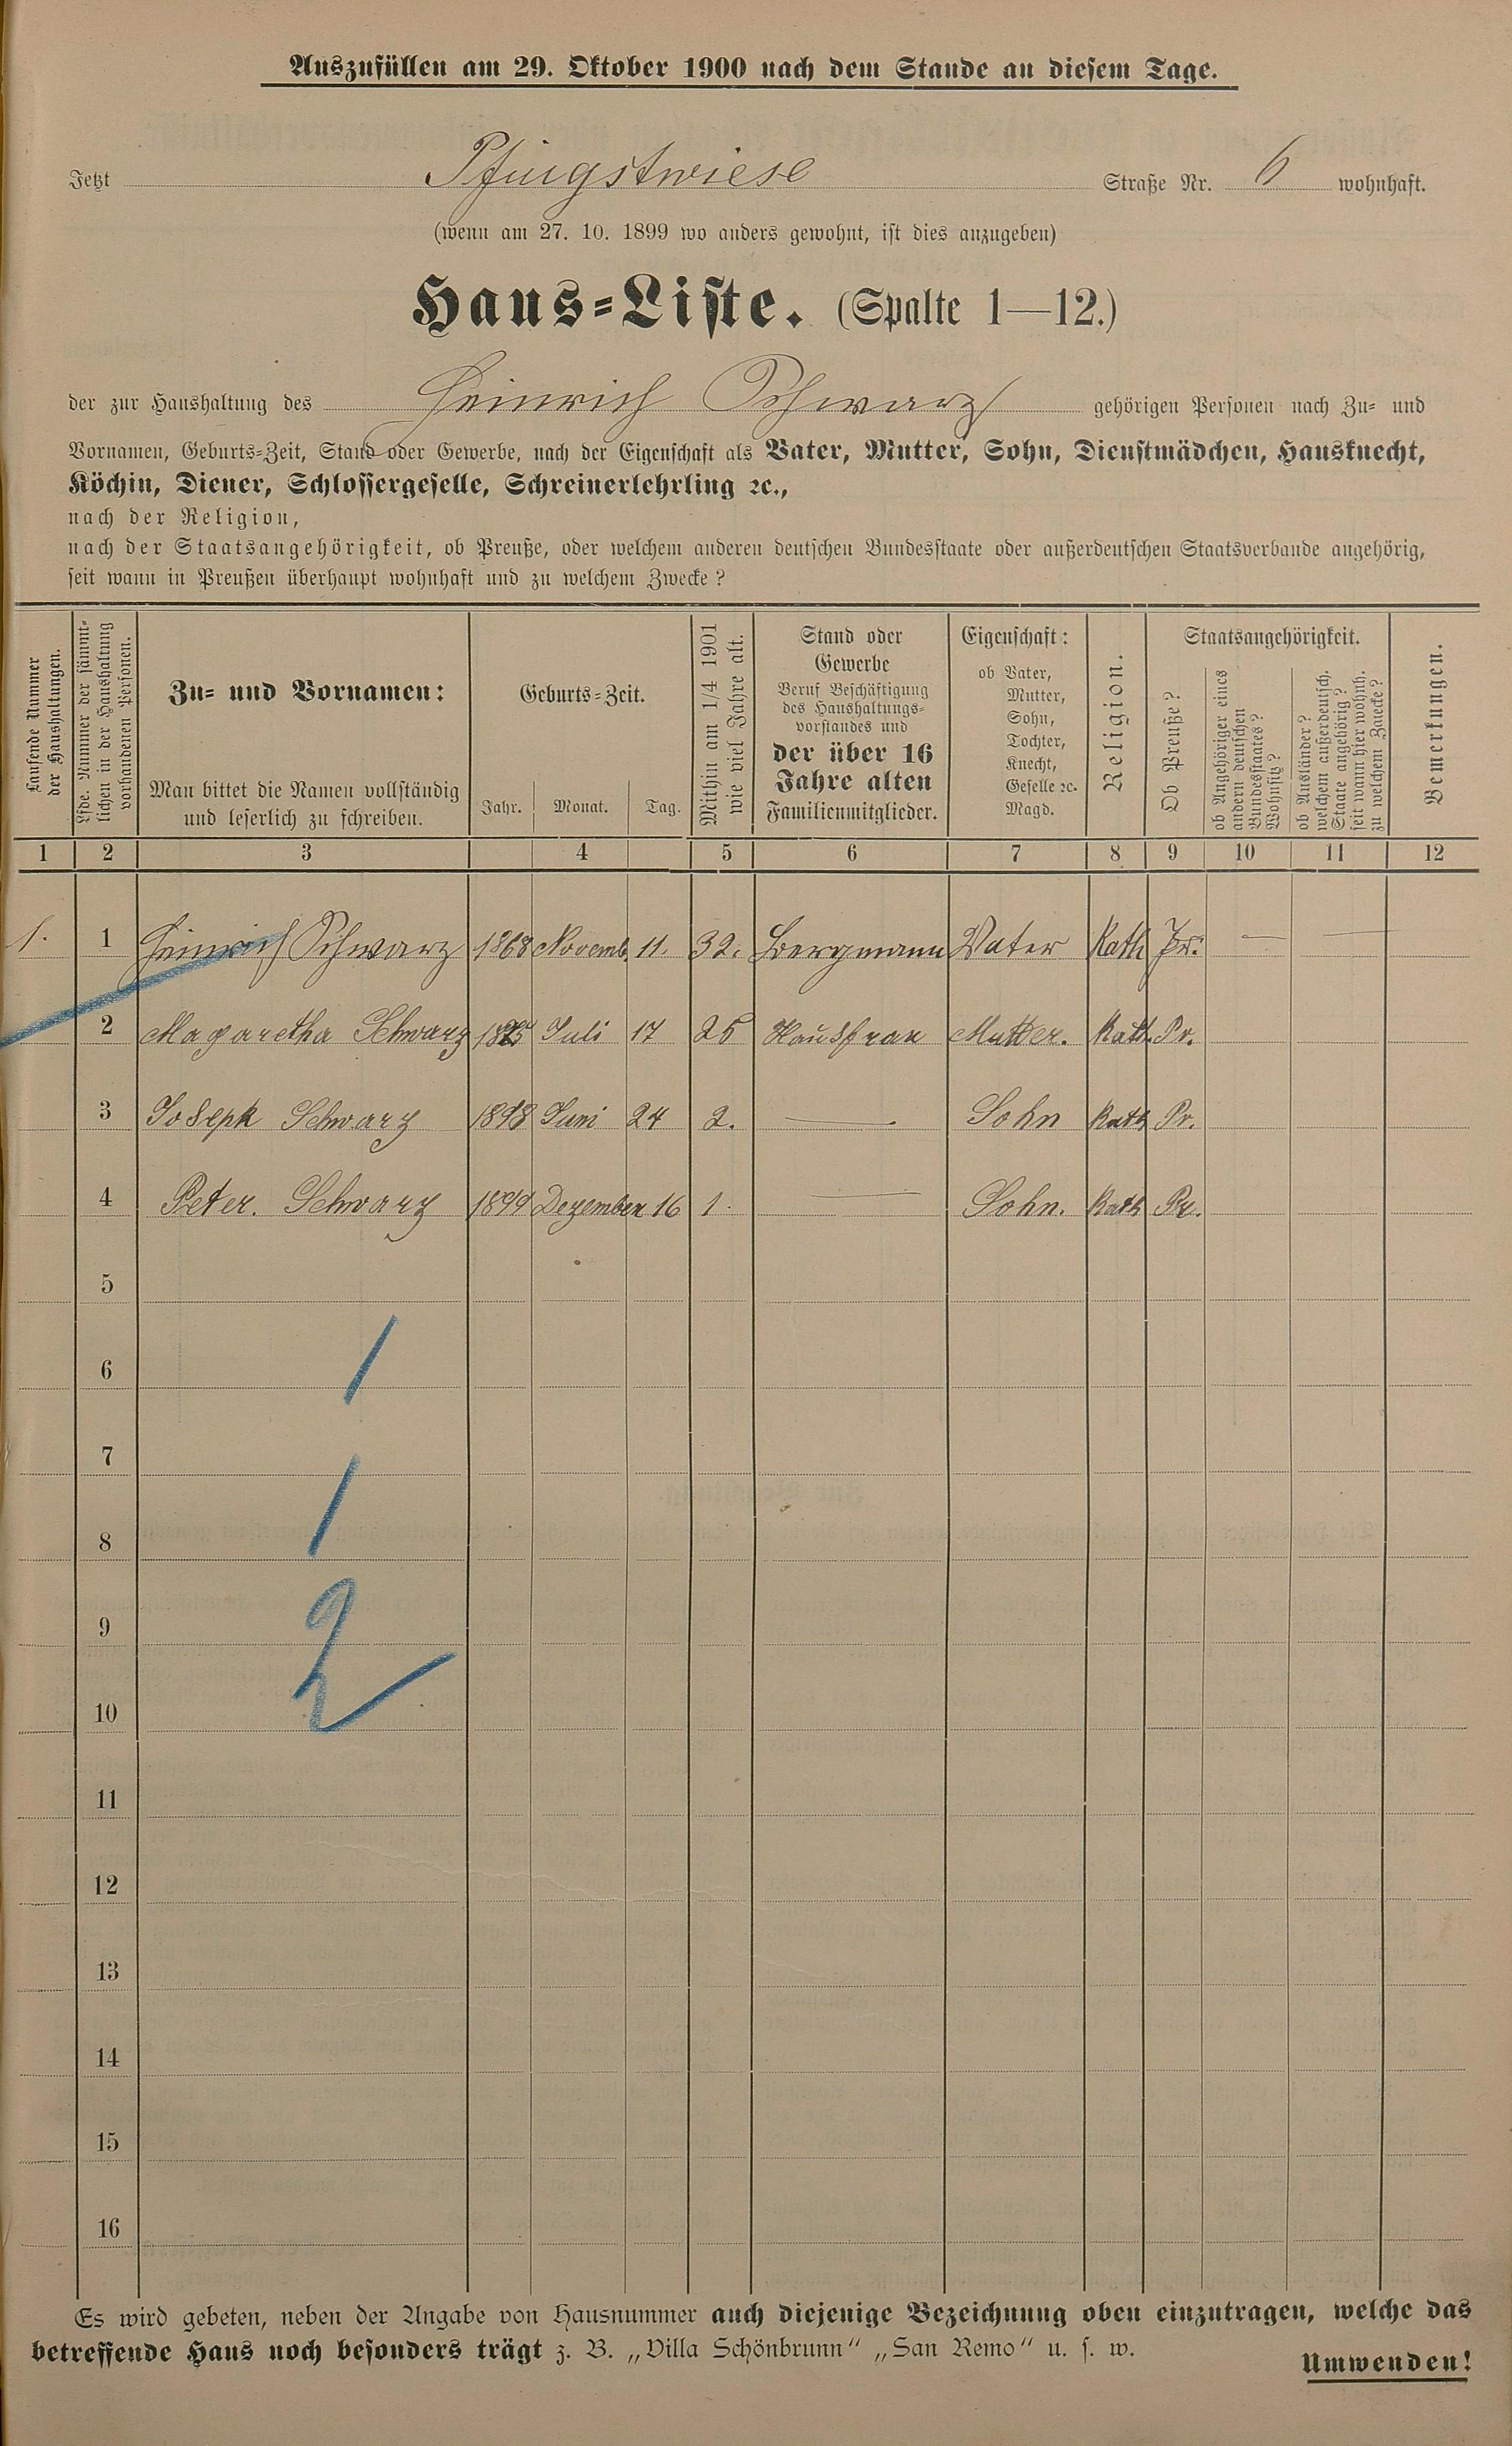 Auszufüllen am 29. Oktober 1900 nach dem Stande an diesem Tage.
Jetzt Pfingstwiese Straße Nr. 6 wohnhaft.
(wenn am 27. 10. 1899 wo anders gewohnt, ist dies anzugeben)
Haus=Liste. (Spalte 1—12.)
der zur Haushaltung des Heinrich Schwarz gehörigen Personen nach Zu= und
Vornamen, Geburts=Zeit, Stand oder Gewerbe, nach der Eigenschaft als Vater, Mutter, Sohn, Dienstmädchen, Hausknecht,
Köchin, Diener, Schlossergeselle, Schreinerlehrling ꝛc.,
nach der Religion,
nach der Staatsangehörigkeit, ob Preuße, oder welchem anderen deutschen Bundesstaate oder außerdeutschen Staatsverbande angehörig,
seit wann in Preußen überhaupt wohnhaft und zu welchem Zwecke?
Laufende Nummer
der Haushaltungen.
Lfde. Nummer der sämmt=
lichen in der Haushaltung
vorhandenen Personen.
Zu= und Vornamen:
Man bittet die Namen vollständig
und leserlich zu schreiben.
Geburts=Zeit.
Jahr. Monat. Tag.
Mithin am 1/4 1901
wie viel Jahre alt.
Stand oder
Gewerbe
Beruf Beschäftigung
des Haushaltungs=
vorstandes und
der über 16
Jahre alten
Familienmitglieder.
Eigenschaft:
ob Vater,
Mutter,
Sohn,
Tochter,
Knecht,
Geselle ꝛc.
Magd.
Religion.
Staatsangehörigkeit.
Ob Preuße?
ob Angehöriger eines
andern deutschen
Bundesstaates?
Wohnsitz?
ob Ausländer?
welchem außerdeutsch.
Staate angehörig?
seit wann hier wohnh.
zu welchem Zwecke?
Bemerkungen.
1 2 3 4 5 6 7 8 9 10 11 12
1. 1 Heinrich Schwarz 1868 Novemb. 11. 32. Bergmann Vater Kath Pr. — —
2 Magaretha Schwarz 1875 Juli 17 25 Hausfrau Mutter. Kath. Pr.
3 Joseph Schwarz 1898 Juni 24 2. — Sohn Kath Pr.
4 Peter. Schwarz 1899 Dezember 16 1. — Sohn. Kath Pr.
5
6
1
7
1
8
9
2
10
11
12
13
14
15
16
Es wird gebeten, neben der Angabe von Hausnummer auch diejenige Bezeichnung oben einzutragen, welche das
betreffende Haus noch besonders trägt z. B. „Villa Schönbrunn“ „San Remo“ u. s. w.
Umwenden!